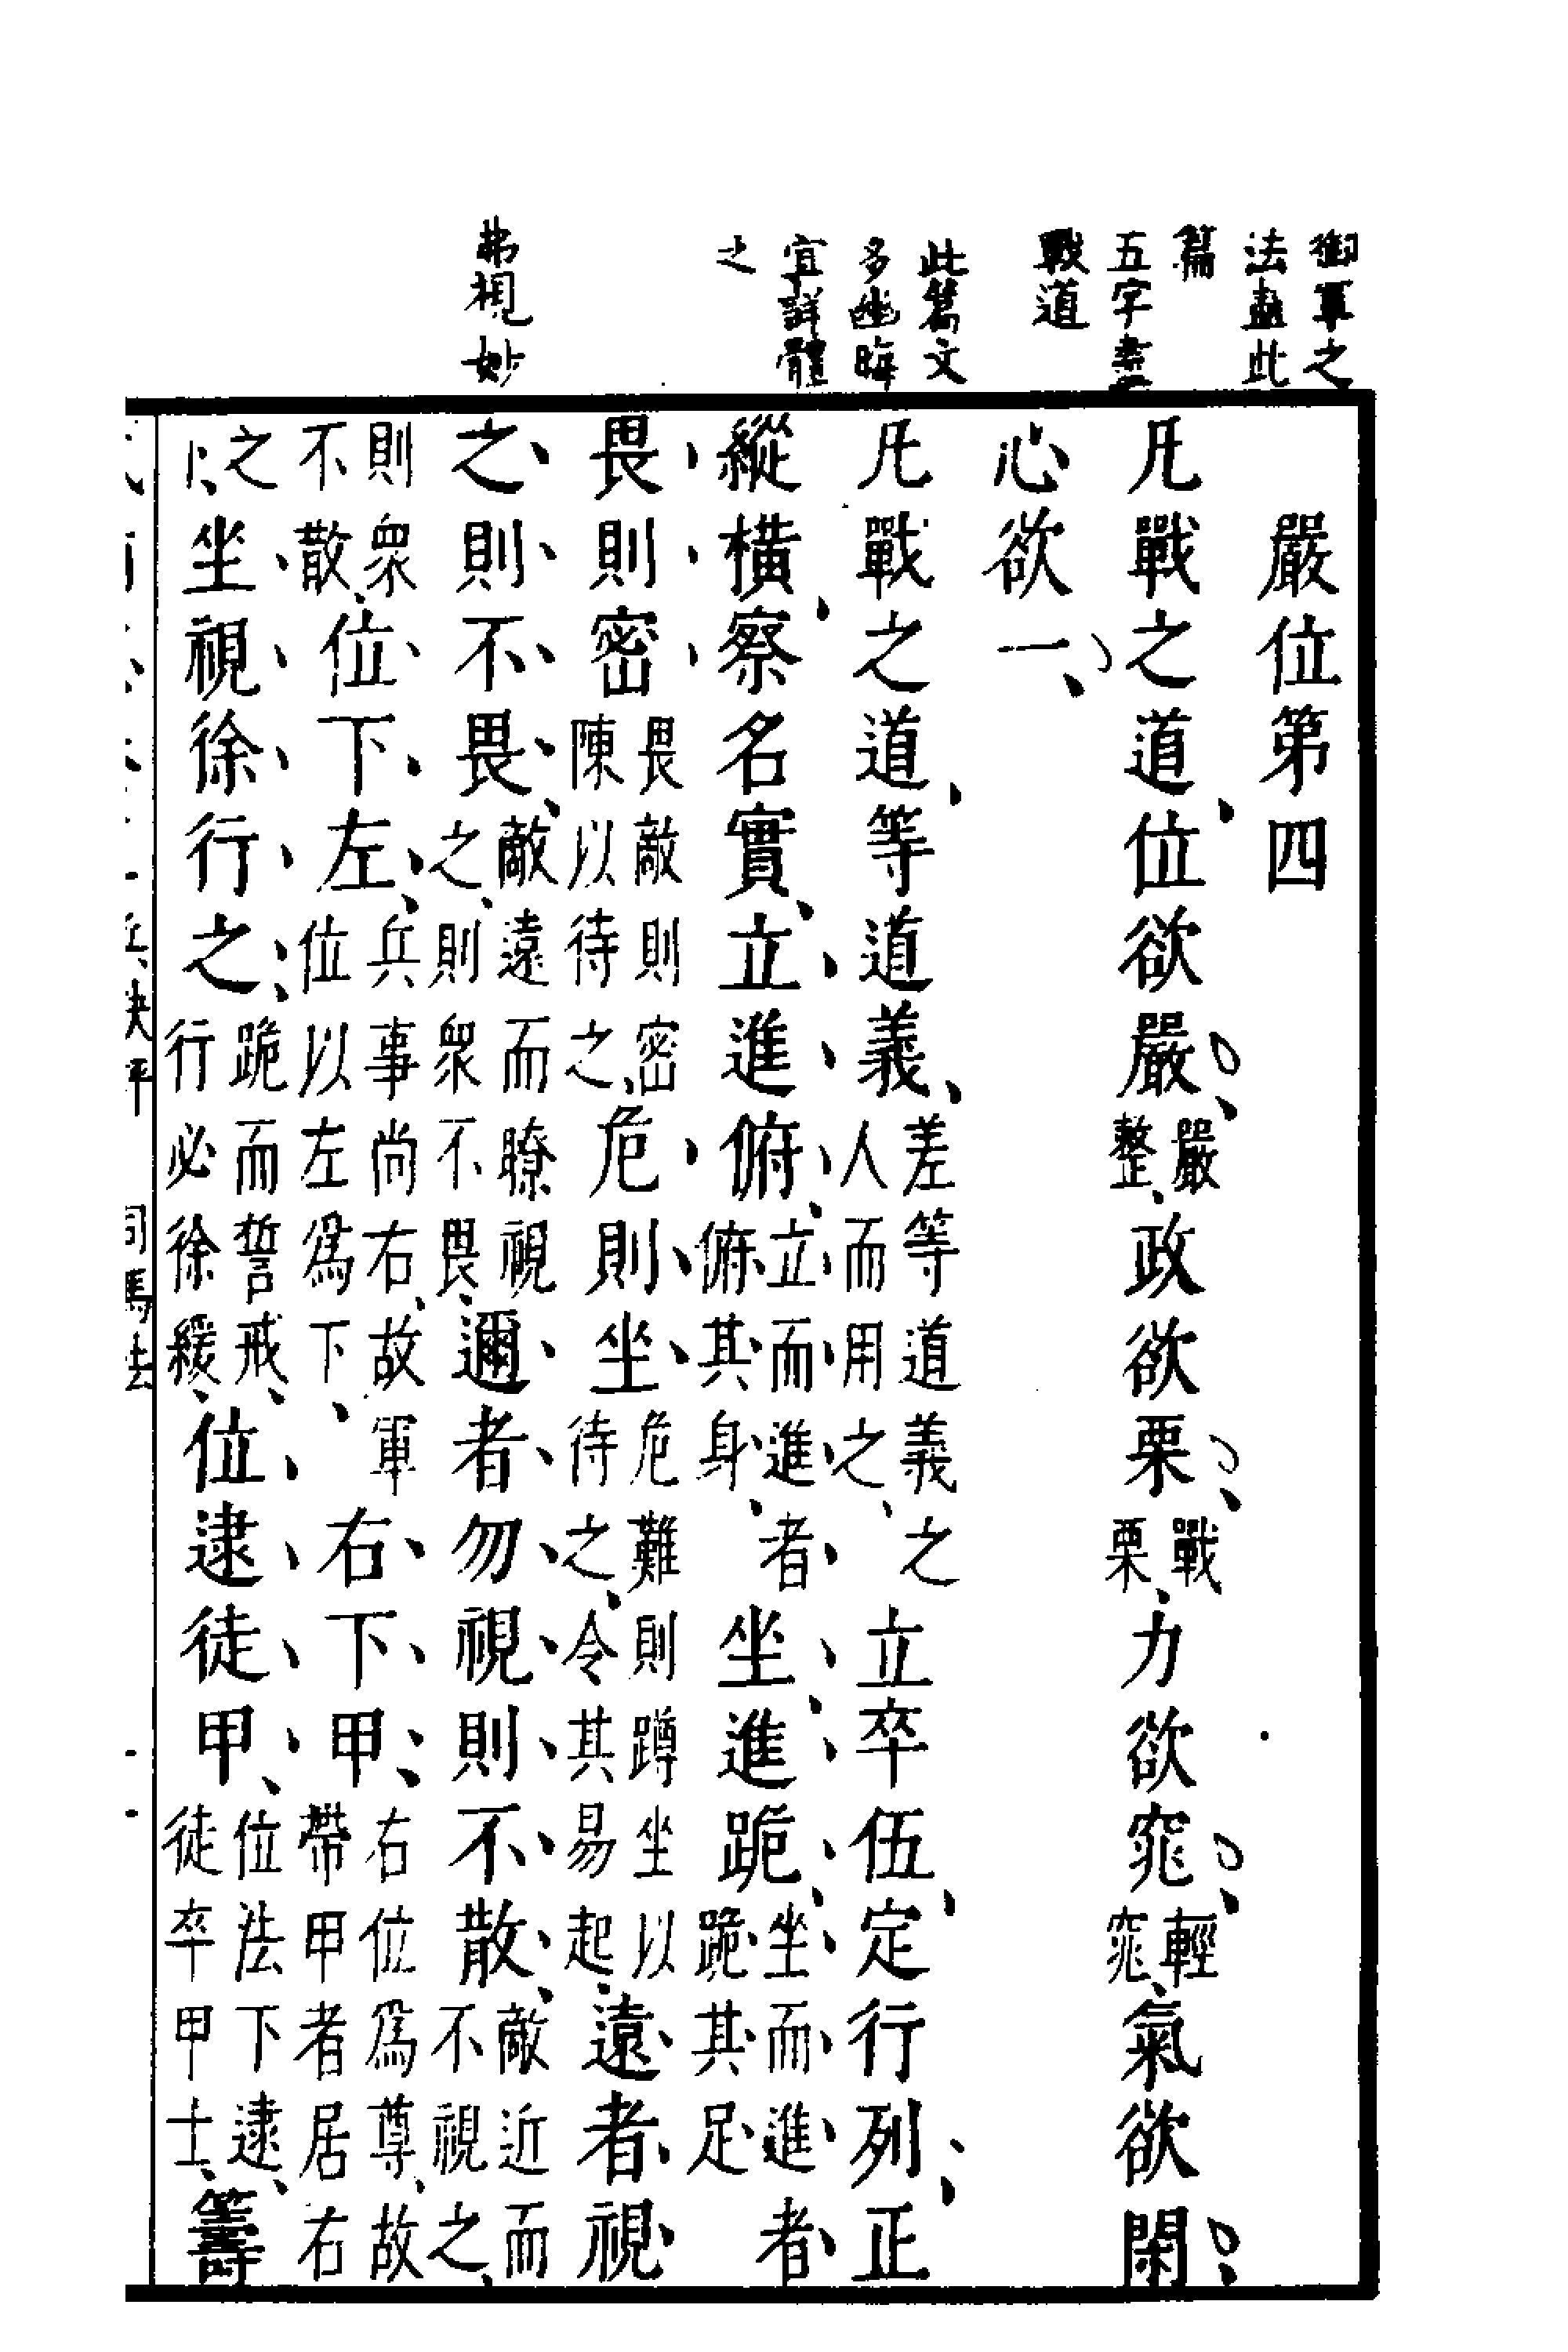 御軍之
法盡此
篇
五字盡
戰道
此篇文
多幽晦
宜詳體
之
弗視妙
嚴位第四
凡戰之道、位欲嚴、嚴整、政欲栗、戰栗、力欲窕、輕窕、氣欲閑、
心欲一、
凡戰之道、等道義、差等道義之人而用之、立卒伍、定行列、正
縱橫、察名實、立進俯、立而進者俯其身、坐進跪、坐而進者跪其足
畏則密畏敵則密陳以待之、危則坐危難則蹲坐以待之、令其易起、遠者視
之則不畏、敵遠而瞭視之、則衆不畏、邇者勿視則不散、敵近而不視之、
則衆不散、位下左、兵事尚右、故軍位以左爲下、右下甲、右位爲尊、故帶甲者居右
之坐視徐行之、跪而誓戒、行必徐緩、位逮徒甲、位法下逮、徒卒甲士、籌
司馬法